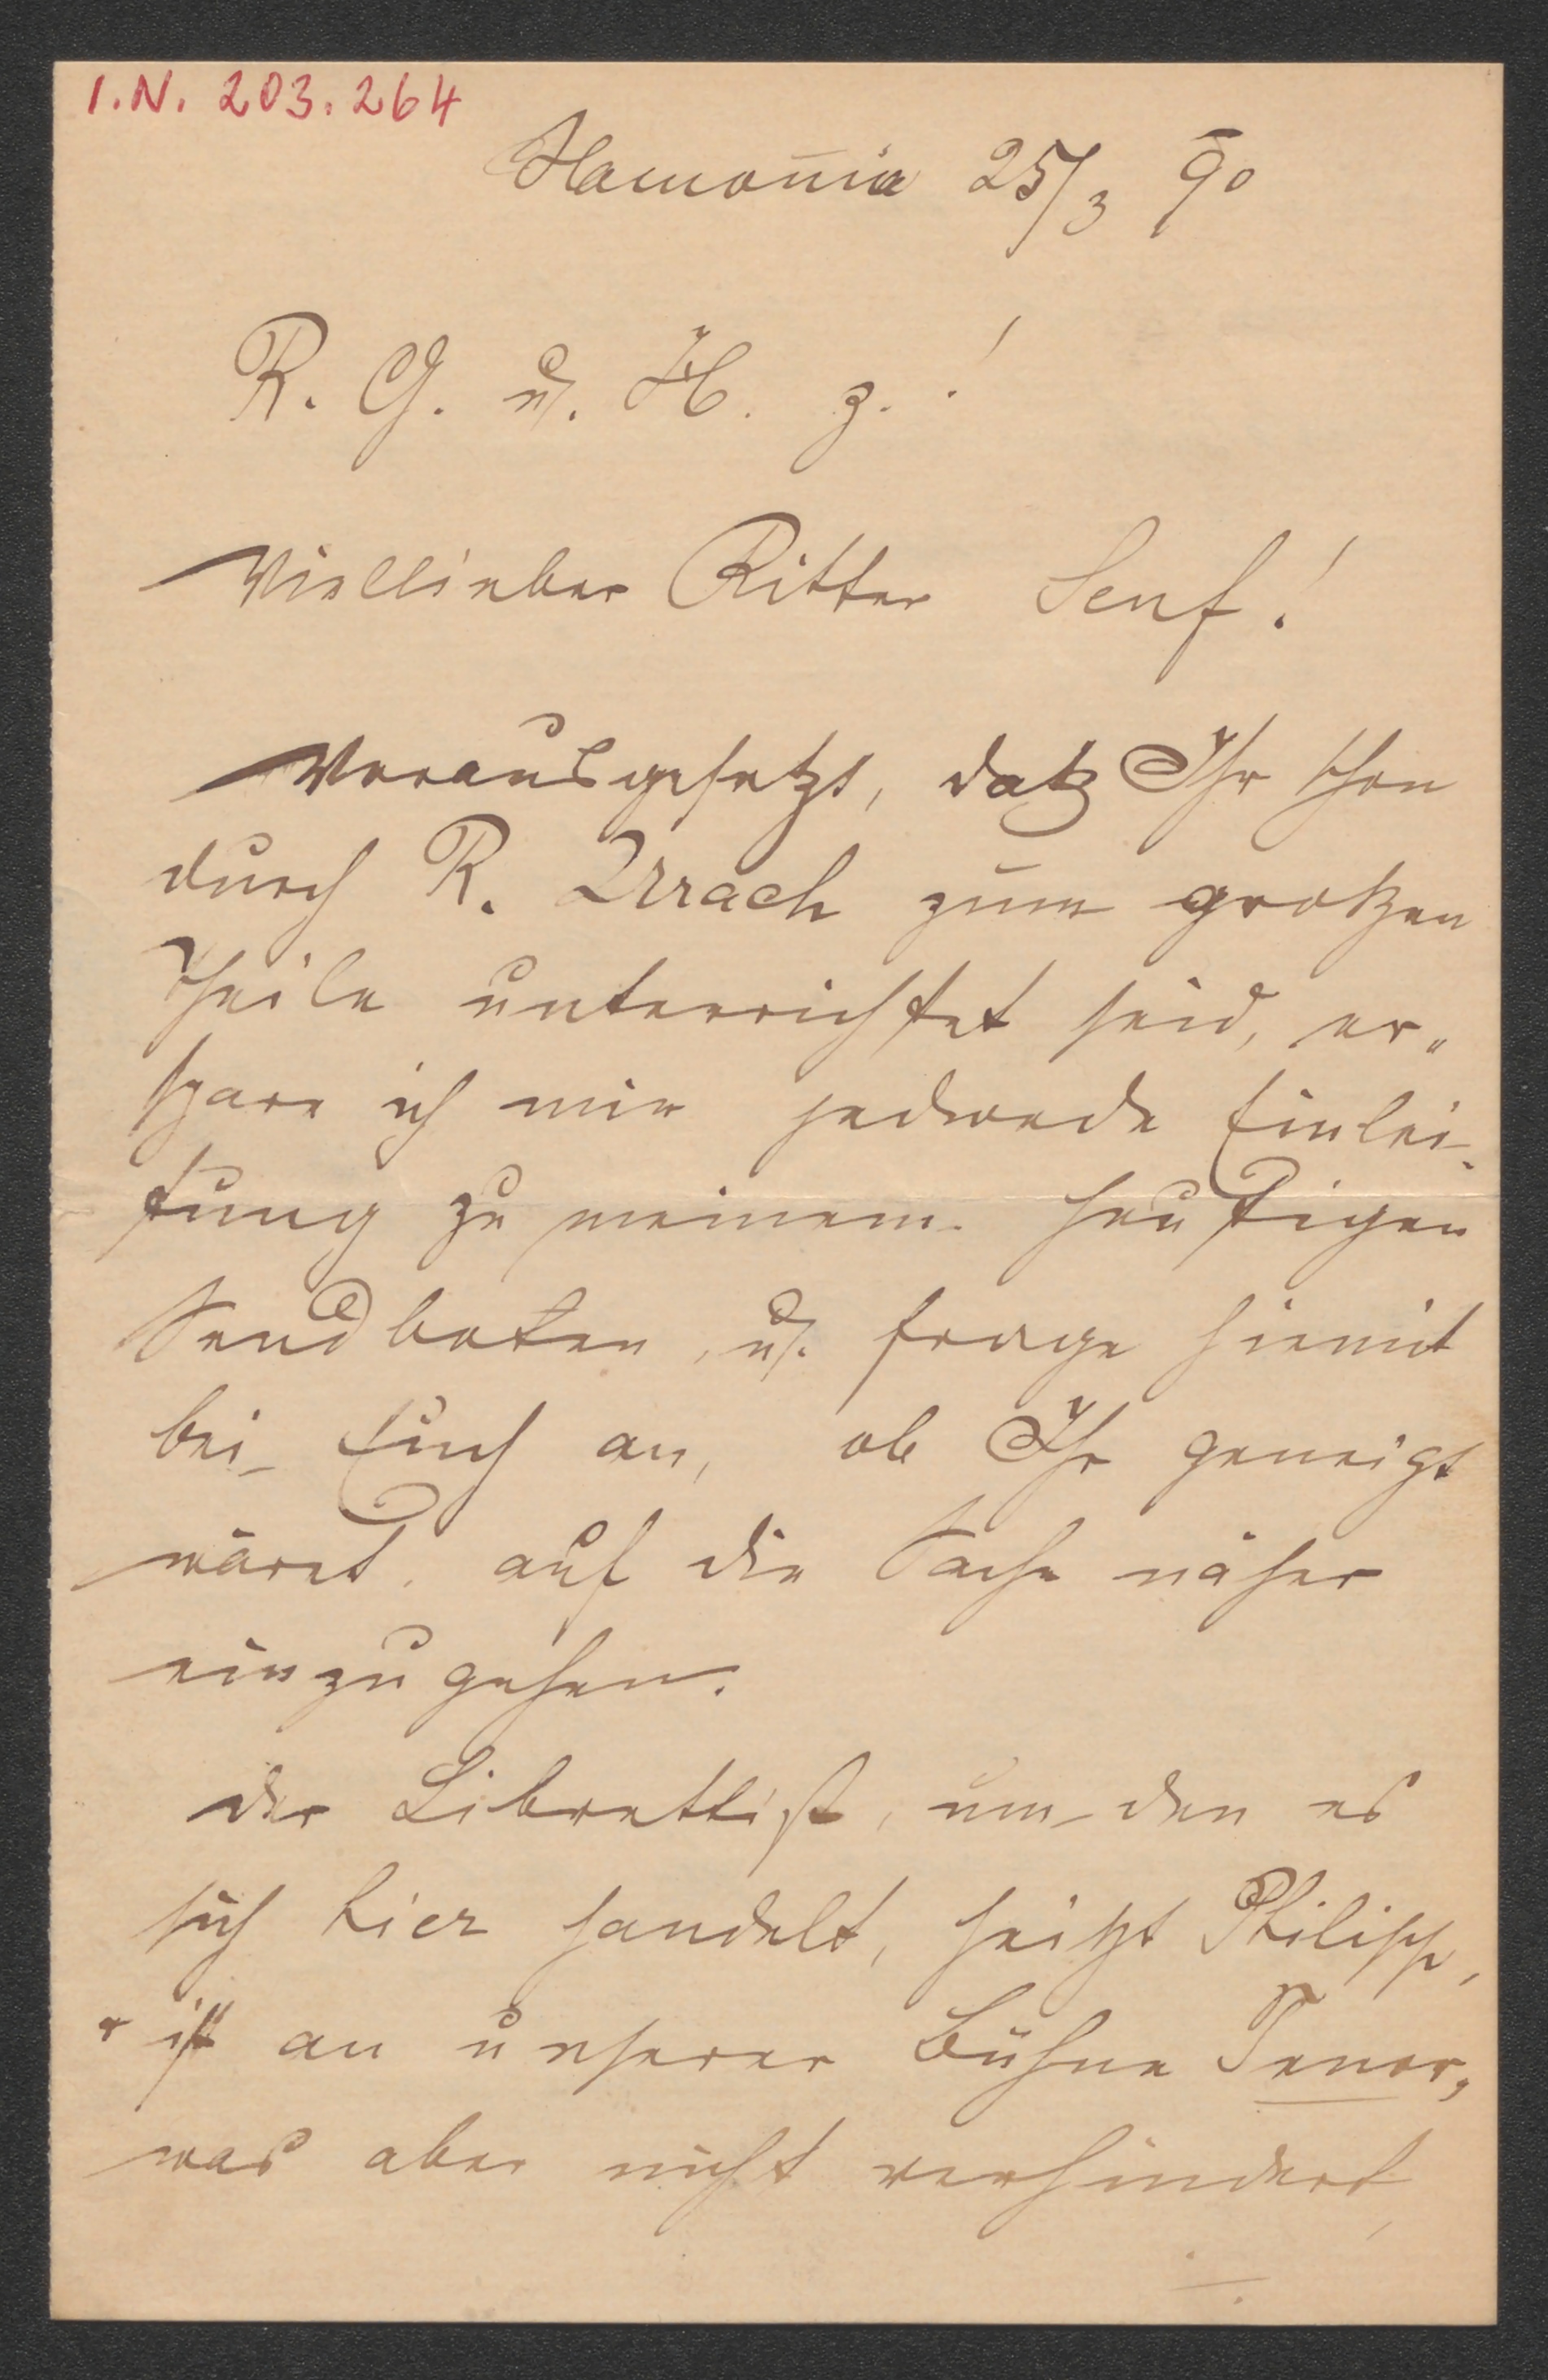 I.N. 203.264
Hamonia 25/3 90
R. G. u. H. z.!
Viellieber Ritter Senf!
Vorausgesetzt, daß Ihr schon
durch R. Urach zum großen
Theile unterrichtet seid, er„
spare ich mir jedwede Einlei„
tung zu meinem heutigen
Sendboten, u. frage hiemit
bei Euch an, ob Ihr geneigt
wäret, auf die Sache näher
einzugehen.
der Librettist, um den es
sich hier handelt, heißt Philipp,
ist an unserer Bühne Tenor,
was aber nicht verhindert,